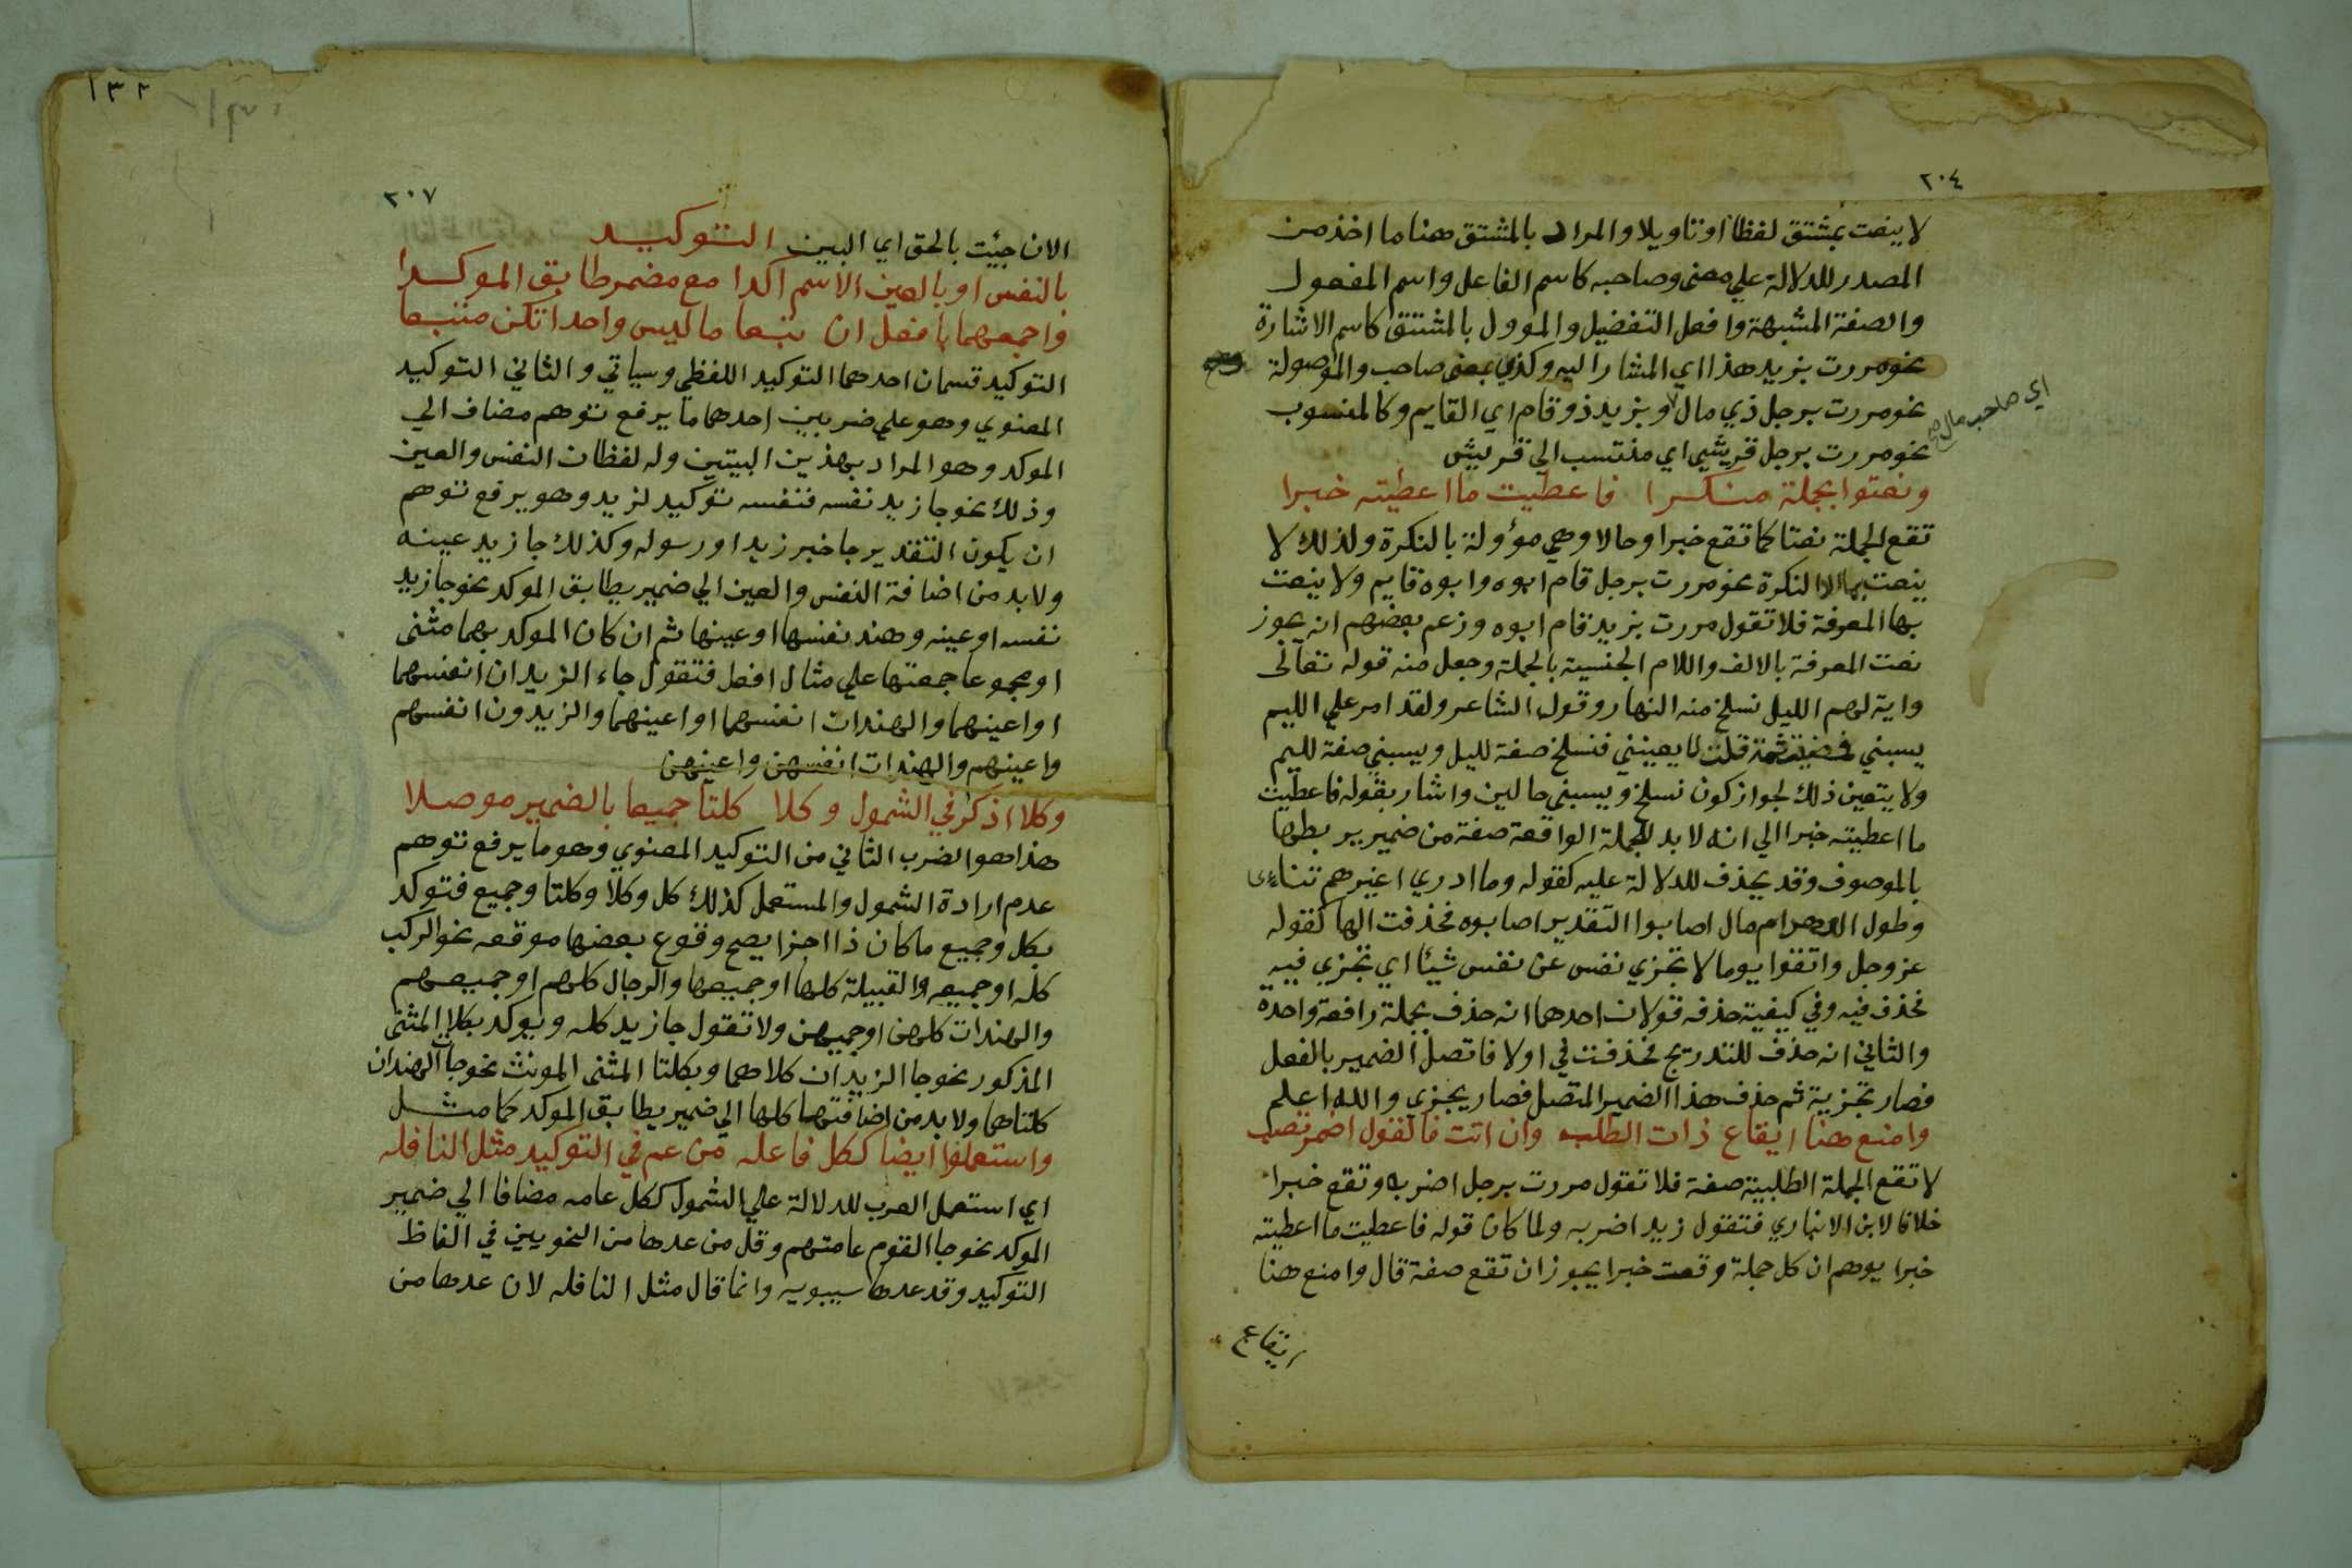 ٢٠٤
لا ينعت بمشتق لفظا او تاويلا والمراد بالمشتق هنا ما اخذ من
المصدر للدلالة علي معنى وصاحبه كاسم الفاعل واسم المفعول
والصفة المشبهة وافعل التفضيل والموول بالمشتق كاسم الاشارة
نحو مررت بزيد هذا اي المشار اليه وكذي بمعنى صاحب والموصولة
نحو مررت برجل ذي مال وبزيد ذو قام اي القايم وكالمنسوب
اي صاحب مال صح
نحو مررت برجل قريشي اي منتسب الي قريش
ونعتوا بجملة منكرا فاعطيت ما اعطيته خبرا
تقع الجملة نعتا كما تقع خبرا وحالا وهي مؤولة بالنكرة ولذلك لا
ينعت بها الا النكرة نحو مررت برجل قام ابوه وابوه قايم ولا ينعت
بها المعرفة فلا تقول مررت بزيد قام ابوه وزعم بعضهم انه يجوز
نعت المعرفة بالالف واللام الجنسية بالجملة وجعل منه قوله تعالى
واية لهم الليل نسلخ منه النهار وقول الشاعر ولقد امر علي الليم
يسبني فمضيت ثمة قلت لا يعنيني فنسلخ صفة لليل ويسبني صفة لليم
ولا يتعين ذلك لجواز كون نسلخ ويسبني حالين واشار بقوله فاعطيت
ما اعطيته خبرا الي انه لا بد للجملة الواقعة صفة من ضمير يربطها
بالموصوف وقد يحذف للدلالة عليه كقوله وما ادري اغيرهم تناءى
وطول الدهر ام مال اصابوا التقدير اصابوه فحذفت الها كقوله
عز وجل واتقوا يوما لا تجزي نفس عن نفس شيئا اي تجزي فيه
فحذف فيه وفي كيفية حذفه قولان احدهما انه حذف بجملة رافعة واحدة
والثاني انه حذف للتدريج فحذفت في اولا فاتصل الضمير بالفعل
فصار تجزية ثم حذف هذا الضمير المتصل فصار يجزي والله اعلم
وامنع هنا ايقاع ذات الطلب وان اتت فالقول اضمر تصب
لا تقع الجملة الطلبية صفة فلا تقول مررت برجل اضربه وتقع خبرا
خلافا لابن الانباري فتقول زيد اضربه ولما كان قوله فاعطيت ما اعطيته
خبرا يوهم ان كل جملة وقعت خبرا يجوز ان تقع صفة قال وامنع هنا
ايقاع
١٣٢
٢٠٧
الان جيئت بالحق اي البين التوكيد
بالنفس او بالعين الاسم اكدا مع مضمر طابق الموكدا
واجمعهما بافعل ان تبعا ما ليس واحدا تكن متبعا
التوكيد قسمان احدهما التوكيد اللفظي وسياتي والثاني التوكيد
المعنوي وهو علي ضربين احدهما ما يرفع توهم مضاف الي
الموكد وهو المراد بهذين البيتين وله لفظان النفس والعين
وذلك نحو جا زيد نفسه فنفسه توكيد لزيد وهو يرفع توهم
ان يكون التقدير جا خبر زيد او رسوله وكذلك جا زيد عينه
ولا بد من اضافة النفس والعين الي ضمير يطابق الموكد نحو جا زيد
نفسه او عينه وهند نفسها او عينها ثم ان كان الموكد بهما مثنى
او مجموعا جمعتها علي مثال افعل فتقول جاء الزيدان انفسهما
او اعينهما والهندات انفسهما او اعينهما والزيدون انفسهم
واعينهم والهندات انفسهن واعينهن
وكلا اذكر في الشمول وكلا كلتا جميعا بالضمير موصلا
هذا هو الضرب الثاني من التوكيد المعنوي وهو ما يرفع توهم
عدم ارادة الشمول والمستعمل كذلك كل وكلا وكلتا وجميع فتوكد
بكل وجميع ما كان ذا اجزا يصح وقوع بعضها موقعه نحو الركب
كله او جميعه والقبيلة كلها او جميعها والرجال كلهم او جميعهم
والهندات كلهن او جميعهن ولا تقول جا زيد كله ويوكد بكلا المثنى
المذكور نحو جا الزيدان كلاهما وبكلتا المثنى المونث نحو جا الهندان
كلتاهما ولا بد من اضافتها كلها الي ضمير يطابق الموكد كما مثل
واستعملوا ايضا ككل فاعله من عم في التوكيد مثل النافله
اي استعمل العرب للدلالة علي الشمول ككل عامه مضافا الي ضمير
الموكد نحو جا القوم عامتهم وقل من عدها من النحويين في الفاظ
التوكيد وقد عدها سيبويه وانما قال مثل النافله لان عدها من